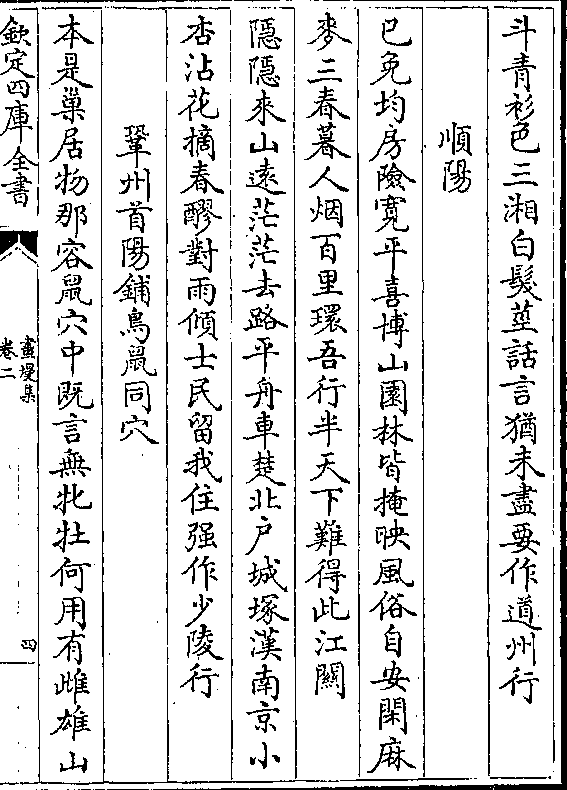 斗青衫色三湘白髮莖話言猶未盡要作道州行
順陽
已免均房險寛平喜博山園林皆掩映風俗自安閑麻
麥三春暮人烟百里環吾行半天下難得此江關
隱隱來山遠茫茫去路平舟車楚北戶城塚漢南京小
杏沾花摘春醪對雨傾士民留我住强作少陵行
鞏州首陽鋪鳥鼠同穴
本是巢居物那容鼠穴中既言無牝牡何用有雌雄山
欽定四庫全書
畫墁集
卷二
四